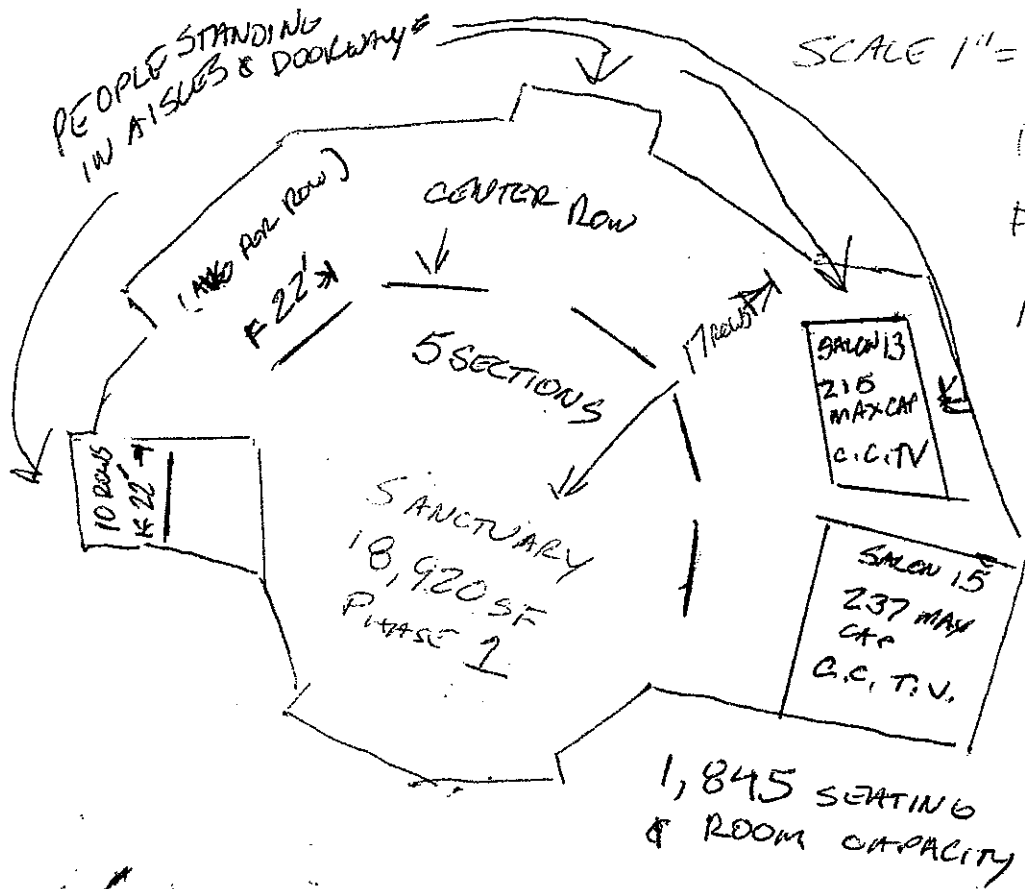 PEOPLE STANDING
IN AISLES & DOORWAYS
SCALE 1"=
CENTER ROW
22'
5 SECTIONS
17 ROWS
10 ROWS
22'
SANCTUARY
18,920 SF
PHASE 1
SALON 13
215
MAX CAP
C.C.TV
SALON 15
237 MAX
CAP
C.C.T.V.
1,845 SEATING
& ROOM CAPACITY